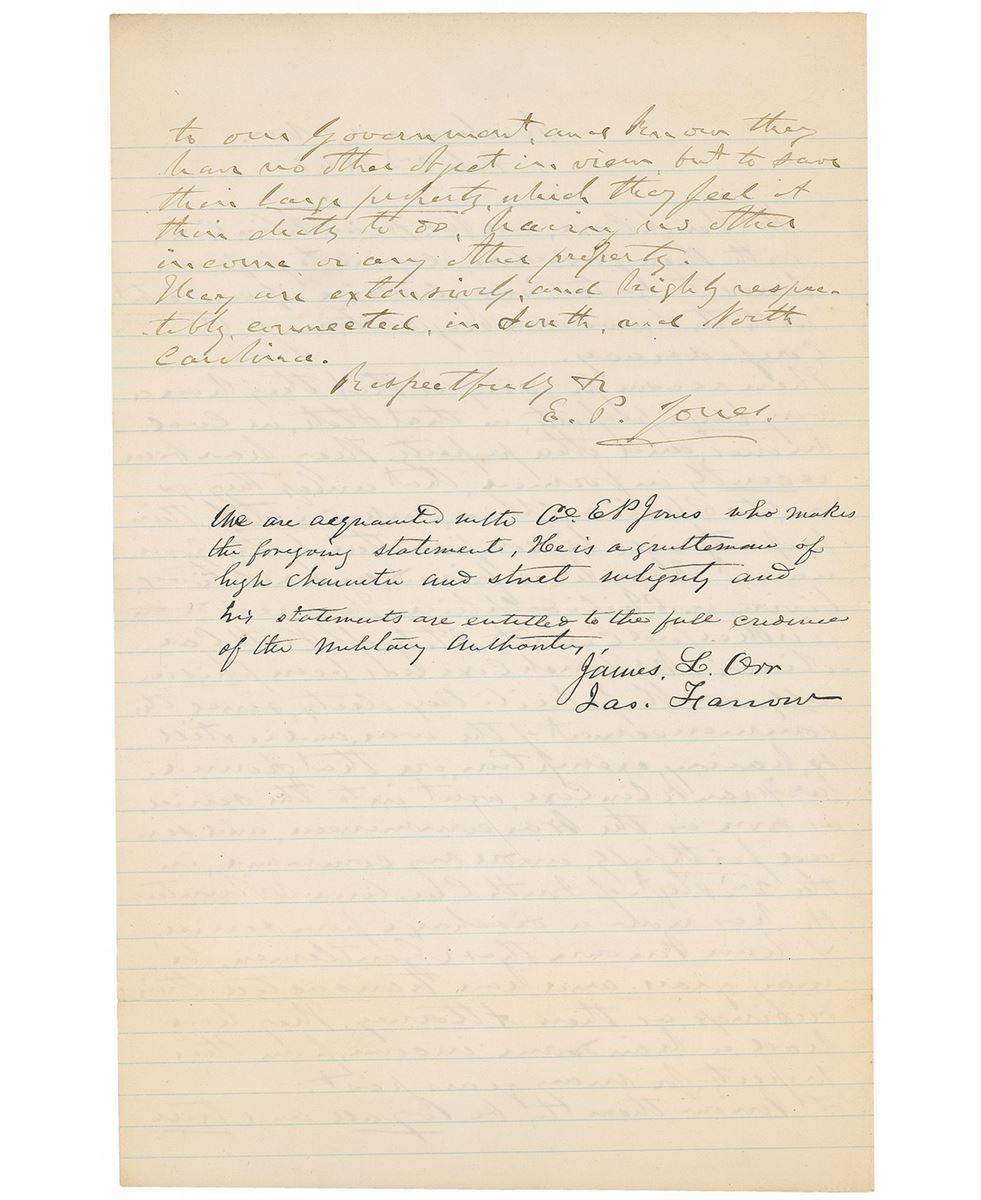 to our Government, and know they
have no other object in view but to save
their large property, which they feel it
their duty to do, having no other
income or any other property.
They are extensively, and highly respec-
tibly connected, in South, and North
Carolina.
Respectfully &c
E. P. Jones.
We are acquainted with Col. E P Jones who makes
the foregoing statement, He is a gentleman of
high character and strict integrity and
his statements are entitled to the full credence
of the Military Authorities,
James. L. Orr
Jas. Farrow